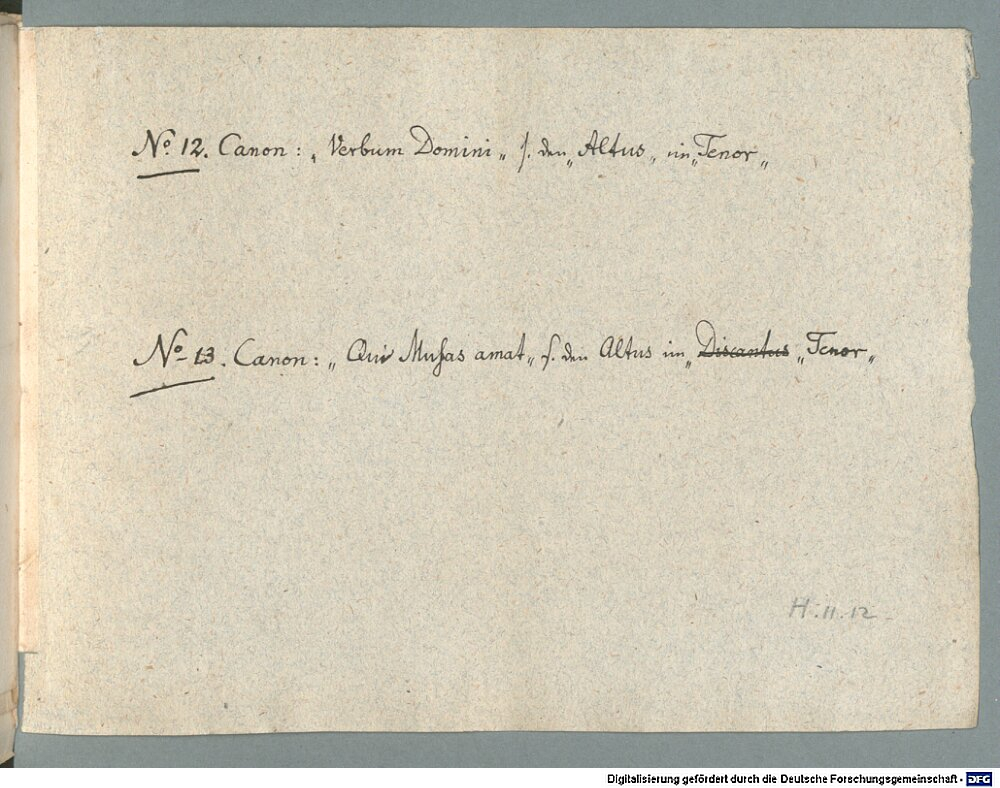 No. 12. Canon: „Verbum Domini„ s. den „Altus„ im „Tenor„
No 13. Canon: „Qui Musas amat„ s. den Altus im „Discantus „Tenor„
H. 11. 12
Digitalisierung gefördert durch die Deutsche Forschungsgemeinschaft - DFG